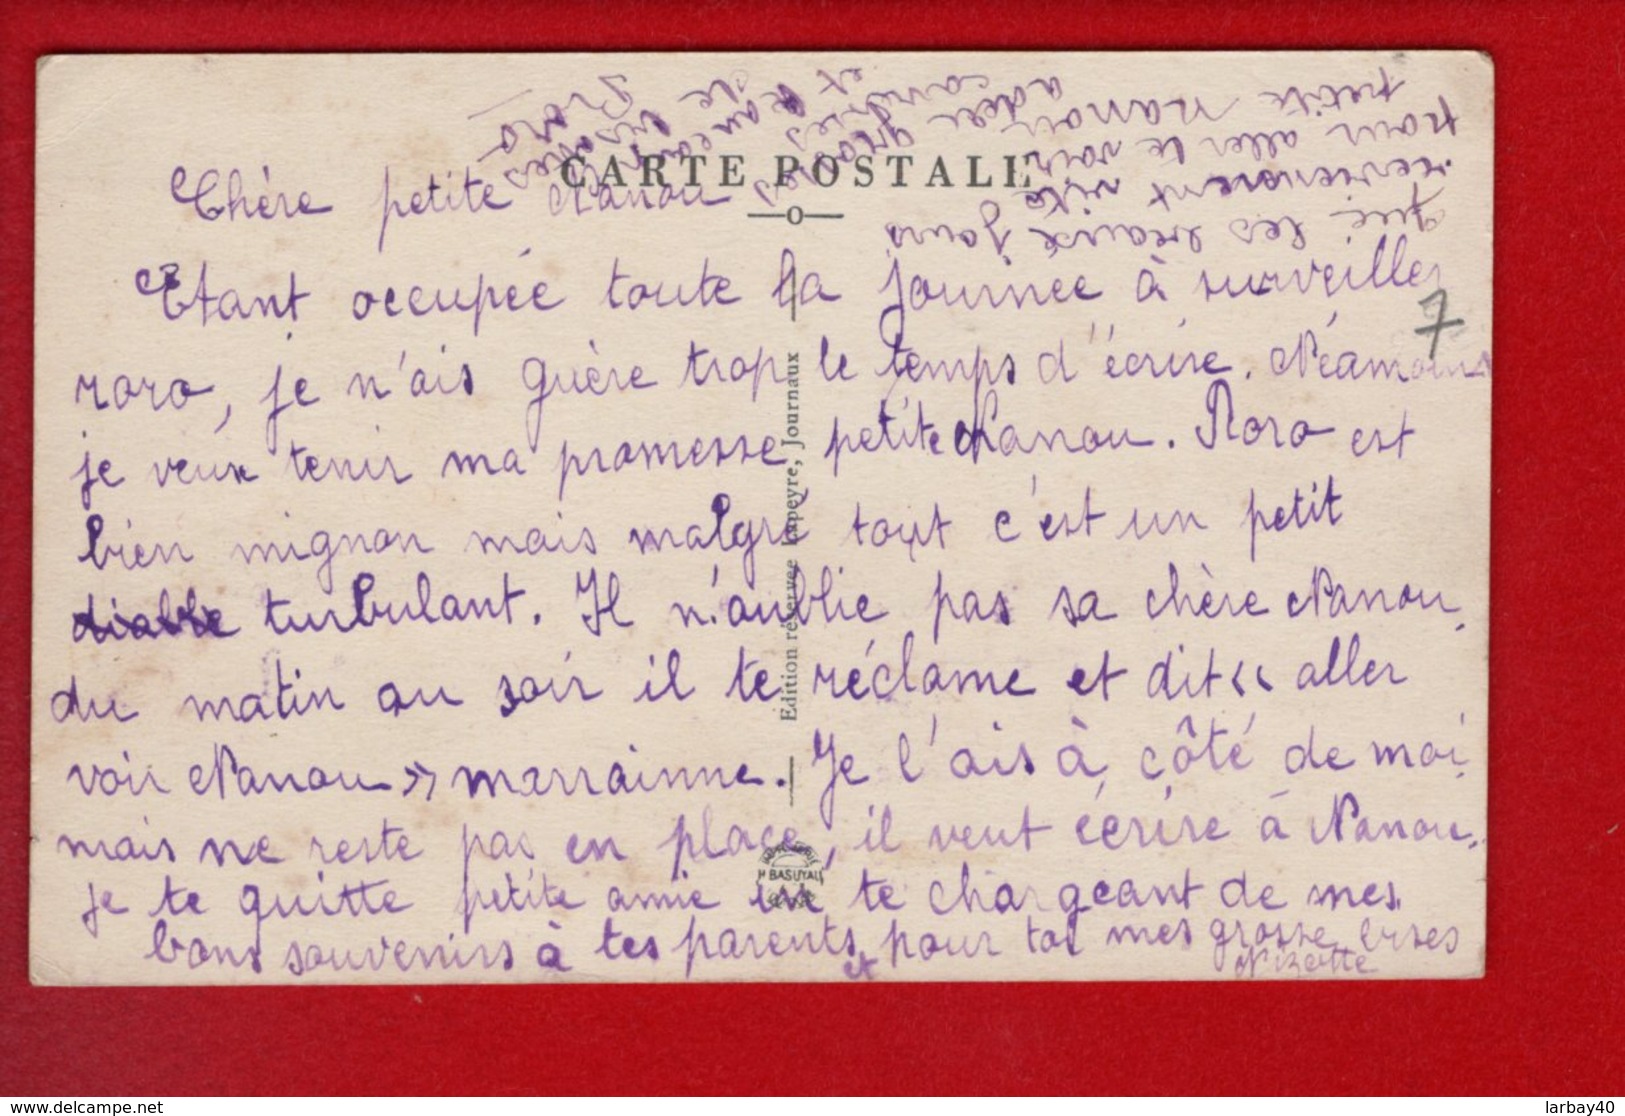 CARTE POSTALE
o
Chère petite Nanou
Etant occupée toute la journée à surveiller
roro, je n'ais guère trop le temps d'écrire. Néamoins
je veux tenir ma promesse petite Nanou. Roro est
bien mignon mais malgré tout c'est un petit
diable turbulant. Il n'oublie pas sa chère Nanou
du matin au soir il te réclame et dit « aller
voir Nanou » marrainne. Je l'ais à côté de moi
mais ne reste pas en place, il veut écrire à Nanou.
je te quitte petite amie en te chargeant de mes
bons souvenirs à tes parents et pour toi mes grosse bises
Nizette
petite Nanou
pour aller te voir
reviennent vite
que les beaux jours
grosses
roro
7
Edition réservée Lapeyre, Journaux
BASUYAU
larbay40
delcampe.net